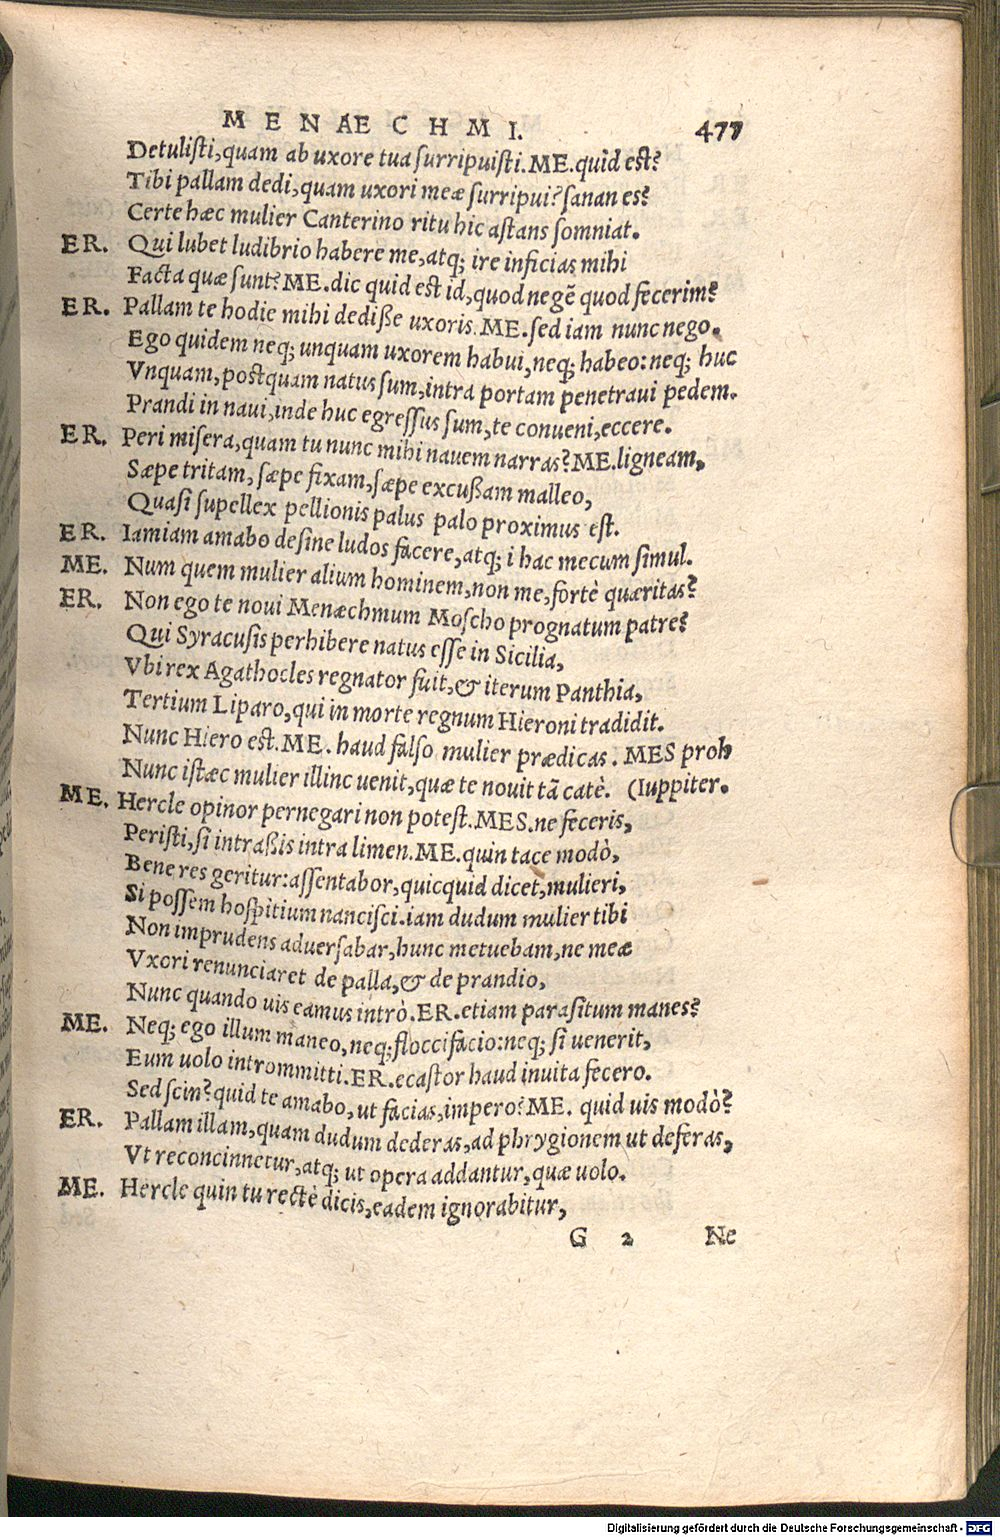 MENAECHMI. 477
Detulisti, quam ab uxore tua surripuisti. ME. quid est?
Tibi pallam dedi, quam uxori meæ surripui? sanan es?
Certe hæc mulier Canterino ritu hic astans somniat.
ER. Qui lubet ludibrio habere me, atq; ire inficias mihi
Facta quæ sunt? ME. dic quid est id, quod negē quod fecerim?
ER. Pallam te hodie mihi dedisse uxoris. ME. sed iam nunc nego.
Ego quidem neq; unquam uxorem habui, neq; habeo: neq; huc
Vnquam, postquam natus sum, intra portam penetraui pedem.
Prandi in naui, inde huc egressus sum, te conueni, eccere.
ER. Peri misera, quam tu nunc mihi nauem narras? ME. ligneam,
Sæpe tritam, sæpe fixam, sæpe excussam malleo,
Quasi supellex pellionis palus palo proximus est.
ER. Iamiam amabo desine ludos facere, atq; i hac mecum simul.
ME. Num quem mulier alium hominem, non me, fortè quæritas?
ER. Non ego te noui Menæchmum Moscho prognatum patre?
Qui Syracusis perhibere natus esse in Sicilia,
Vbi rex Agathocles regnator fuit, & iterum Panthia,
Tertium Liparo, qui in morte regnum Hieroni tradidit.
Nunc Hiero est. ME. haud falso mulier prædicas. MES proh
Nunc istæc mulier illinc uenit, quæ te nouit tā catè. (Iuppiter.
ME. Hercle opinor pernegari non potest. MES. ne feceris,
Peristi, si intrassis intra limen. ME. quin tace modò,
Bene res geritur: assentabor, quicquid dicet, mulieri,
Si possem hospitium nancisci. iam dudum mulier tibi
Non imprudens aduersabar, hunc metuebam, ne meæ
Vxori renunciaret de palla, & de prandio,
Nunc quando uis eamus intrò. ER. etiam parasitum manes?
ME. Neq; ego illum maneo, neq; flocci facio: neq; si uenerit,
Eum uolo intrommitti. ER. ecastor haud inuita fecero.
Sed scin? quid te amabo, ut facias, impero? ME. quid uis modò?
ER. Pallam illam, quam dudum dederas, ad phrygionem ut deferas,
Vt reconcinnetur, atq; ut opera addantur, quæ uolo.
ME. Hercle quin tu rectè dicis, eadem ignorabitur,
G 2 Ne
Digitalisierung gefördert durch die Deutsche Forschungsgemeinschaft - DFG